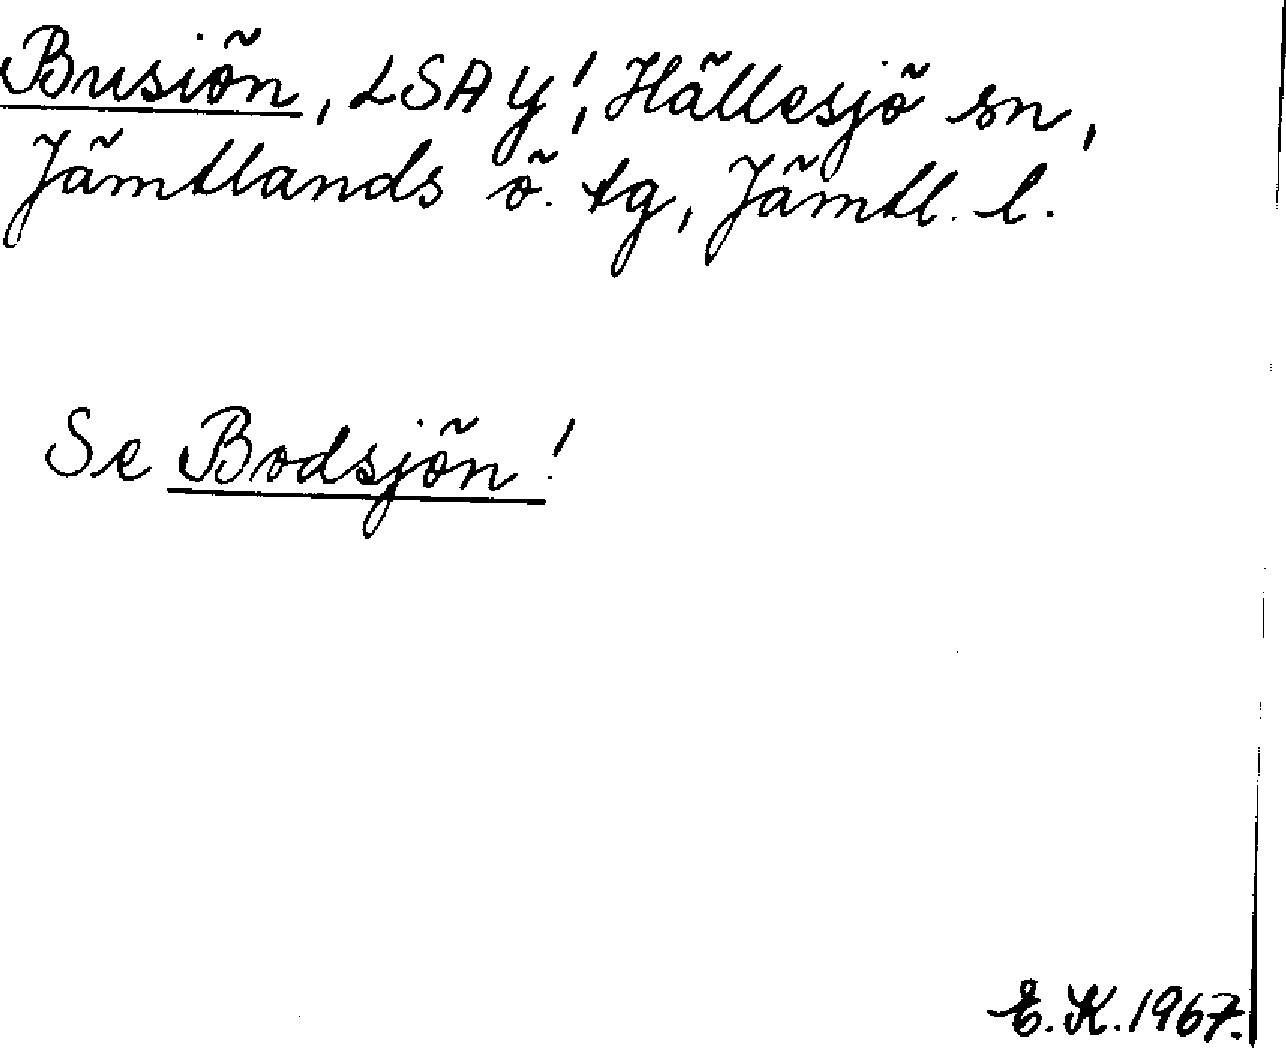 Busiön, LSA Y!, Hällesjö sn,
Jämtlands ö. tg, Jämtl. l.
Se Bodsjön!
E.K.1967.